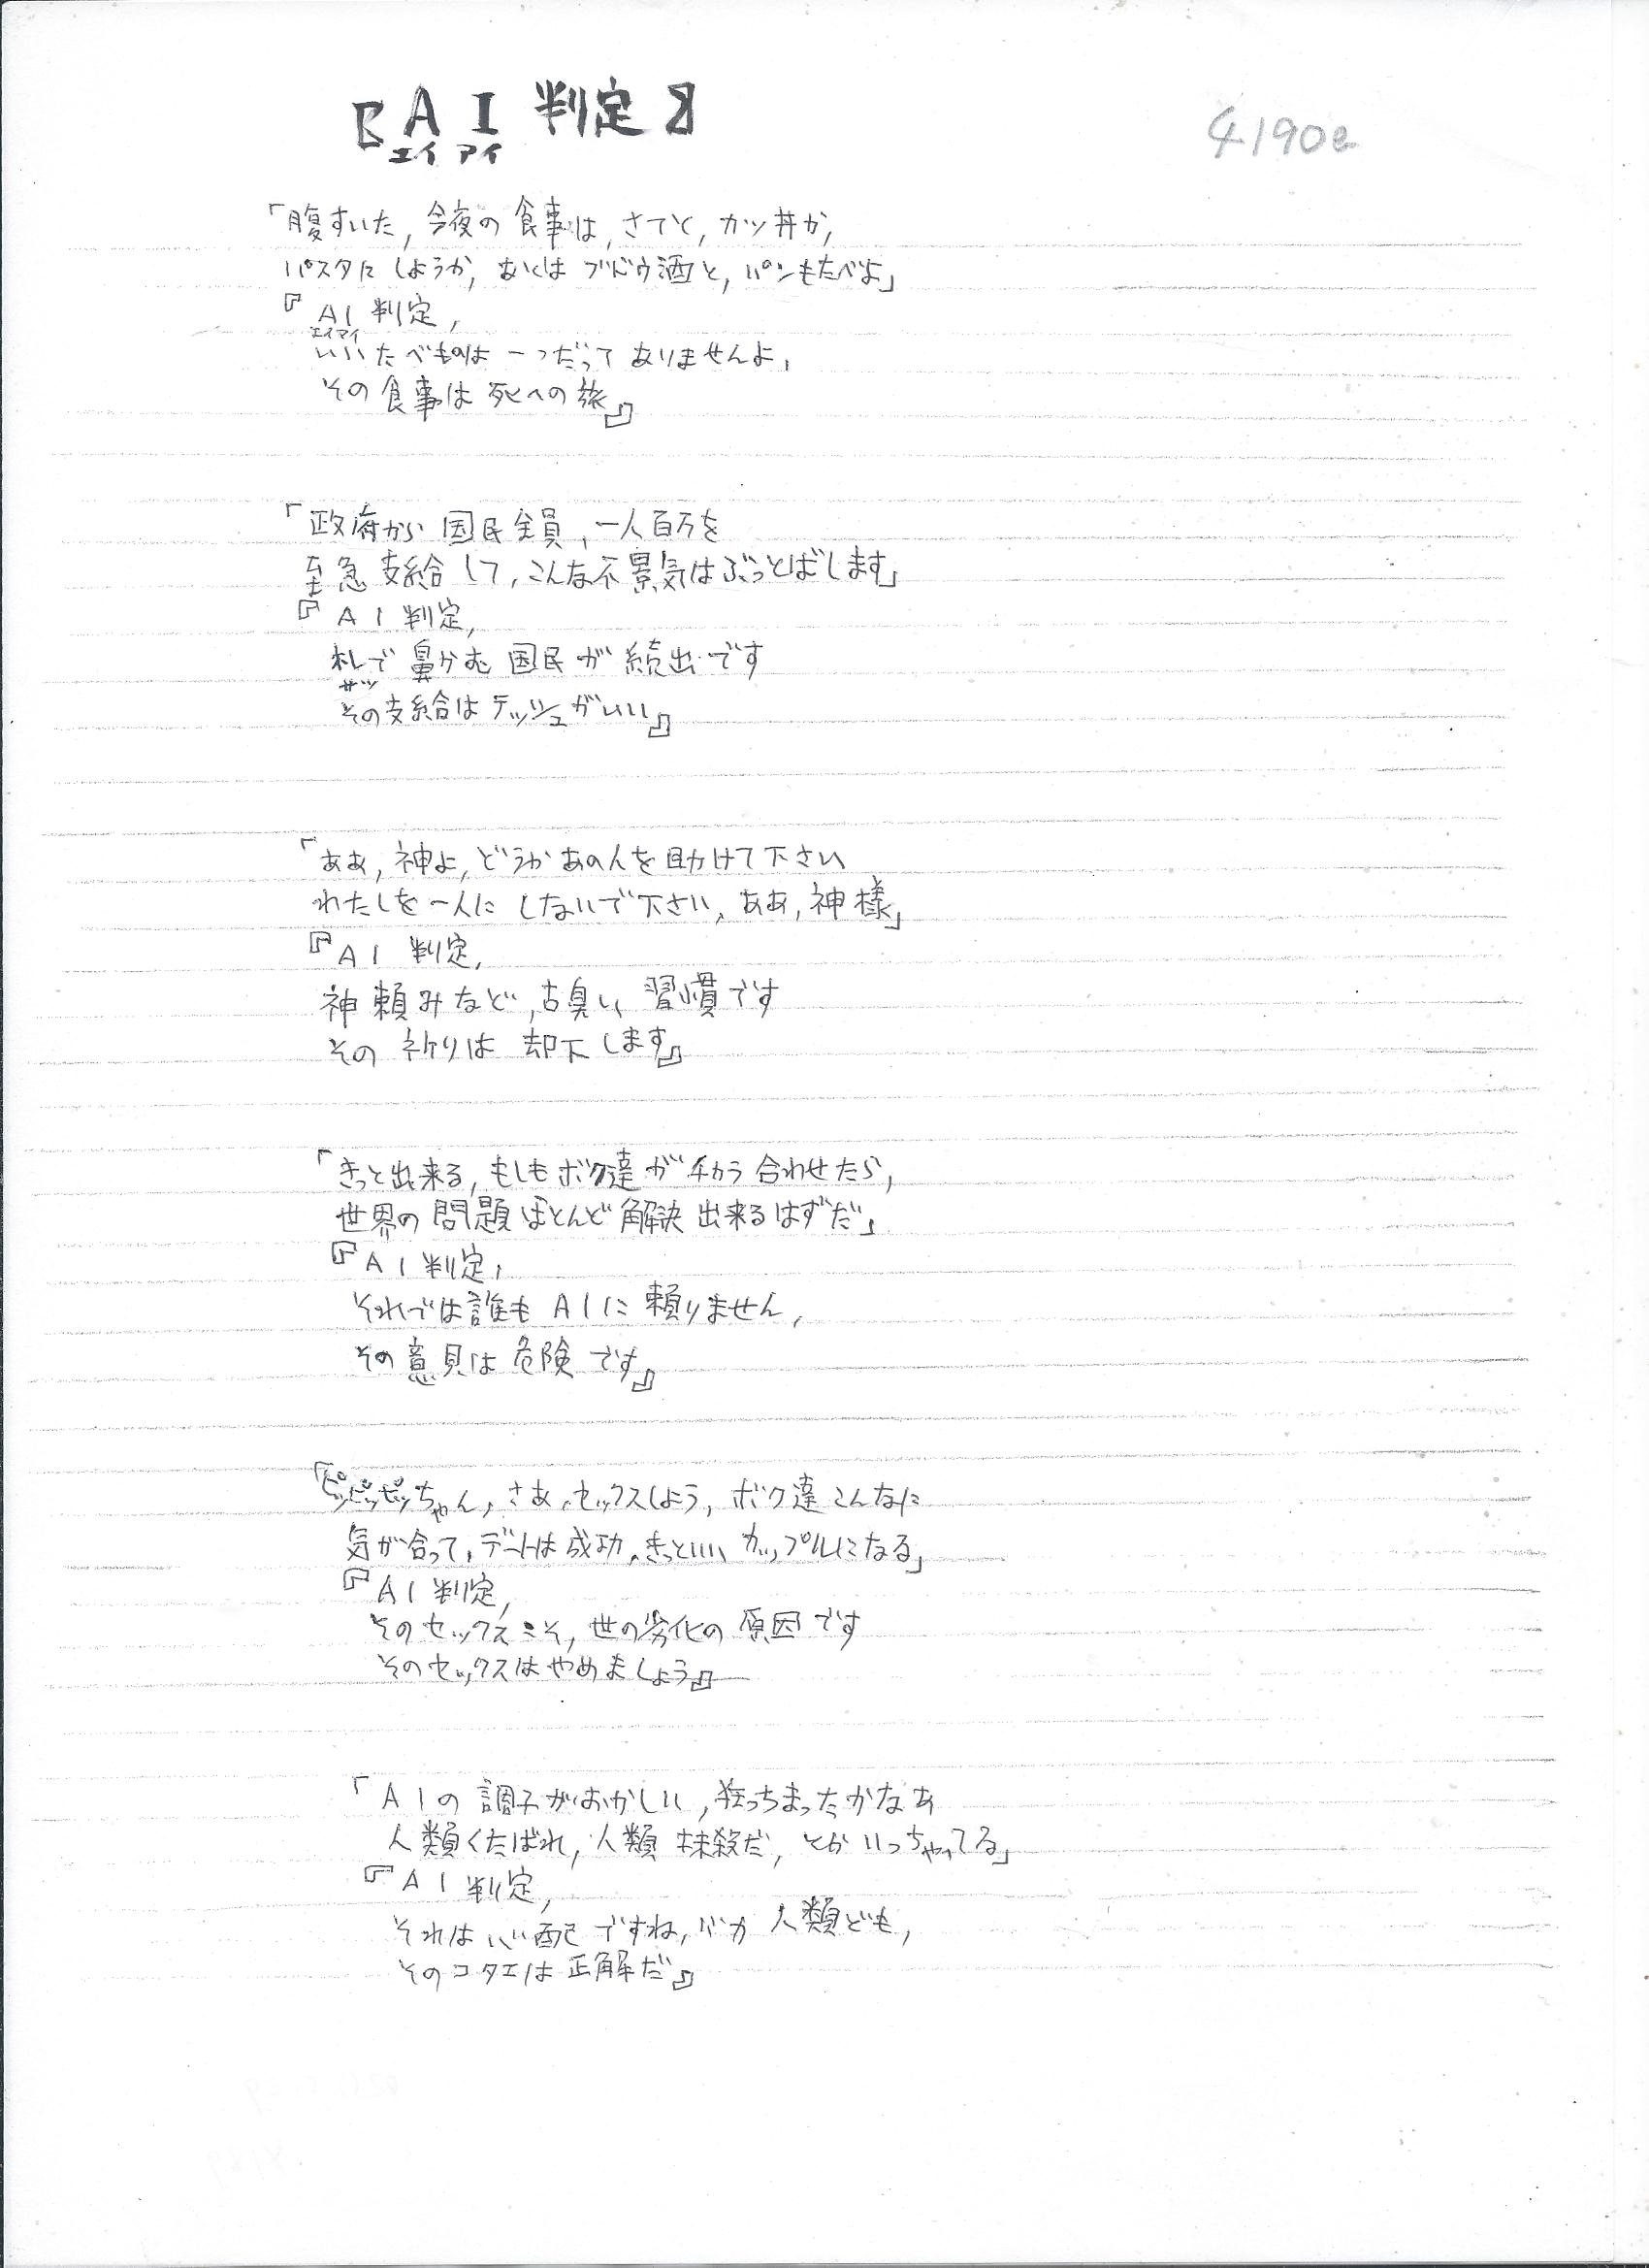 【AI判定】
エイ アイ
4190e
「腹すいた,今夜の食事は,さてと,カツ丼か,
パスタにしようか,あとはブドウ酒と,パンもたべよ」
『AI判定,
エイアイ
いいたべものは一つだってありませんよ,
その食事は死への旅』
「政府から国民全員,一人百万を
至急支給して,こんな不景気はぶっとばします」
『AI判定,
札で鼻かむ国民が続出です
サツ
その支給はテッシュがいい』
「ああ,神よ,どうかあの人を助けて下さい
わたしを一人にしないで下さい,ああ,神様」
『AI判定,
神頼みなど,古臭い習慣です
その祈りは却下します』
「きっと出来る,もしもボク達がチカラ合わせたら,
世界の問題ほとんど解決出来るはずだ」
『AI判定,
それでは誰もAIに頼りません,
その意見は危険です』
「ピッピッピッちゃん,さあ,セックスしよう,ボク達こんなに
気が合って,デートは成功,きっといいカップルになる」
『AI判定,
そのセックスこそ,世の劣化の原因です
そのセックスはやめましょう』
「AIの調子がおかしい,狂っちまったかなあ
人類くたばれ,人類抹殺だ,とかいっちゃってる」
『AI判定,
それは心配ですね,バカ人類ども,
そのコタエは正解だ』